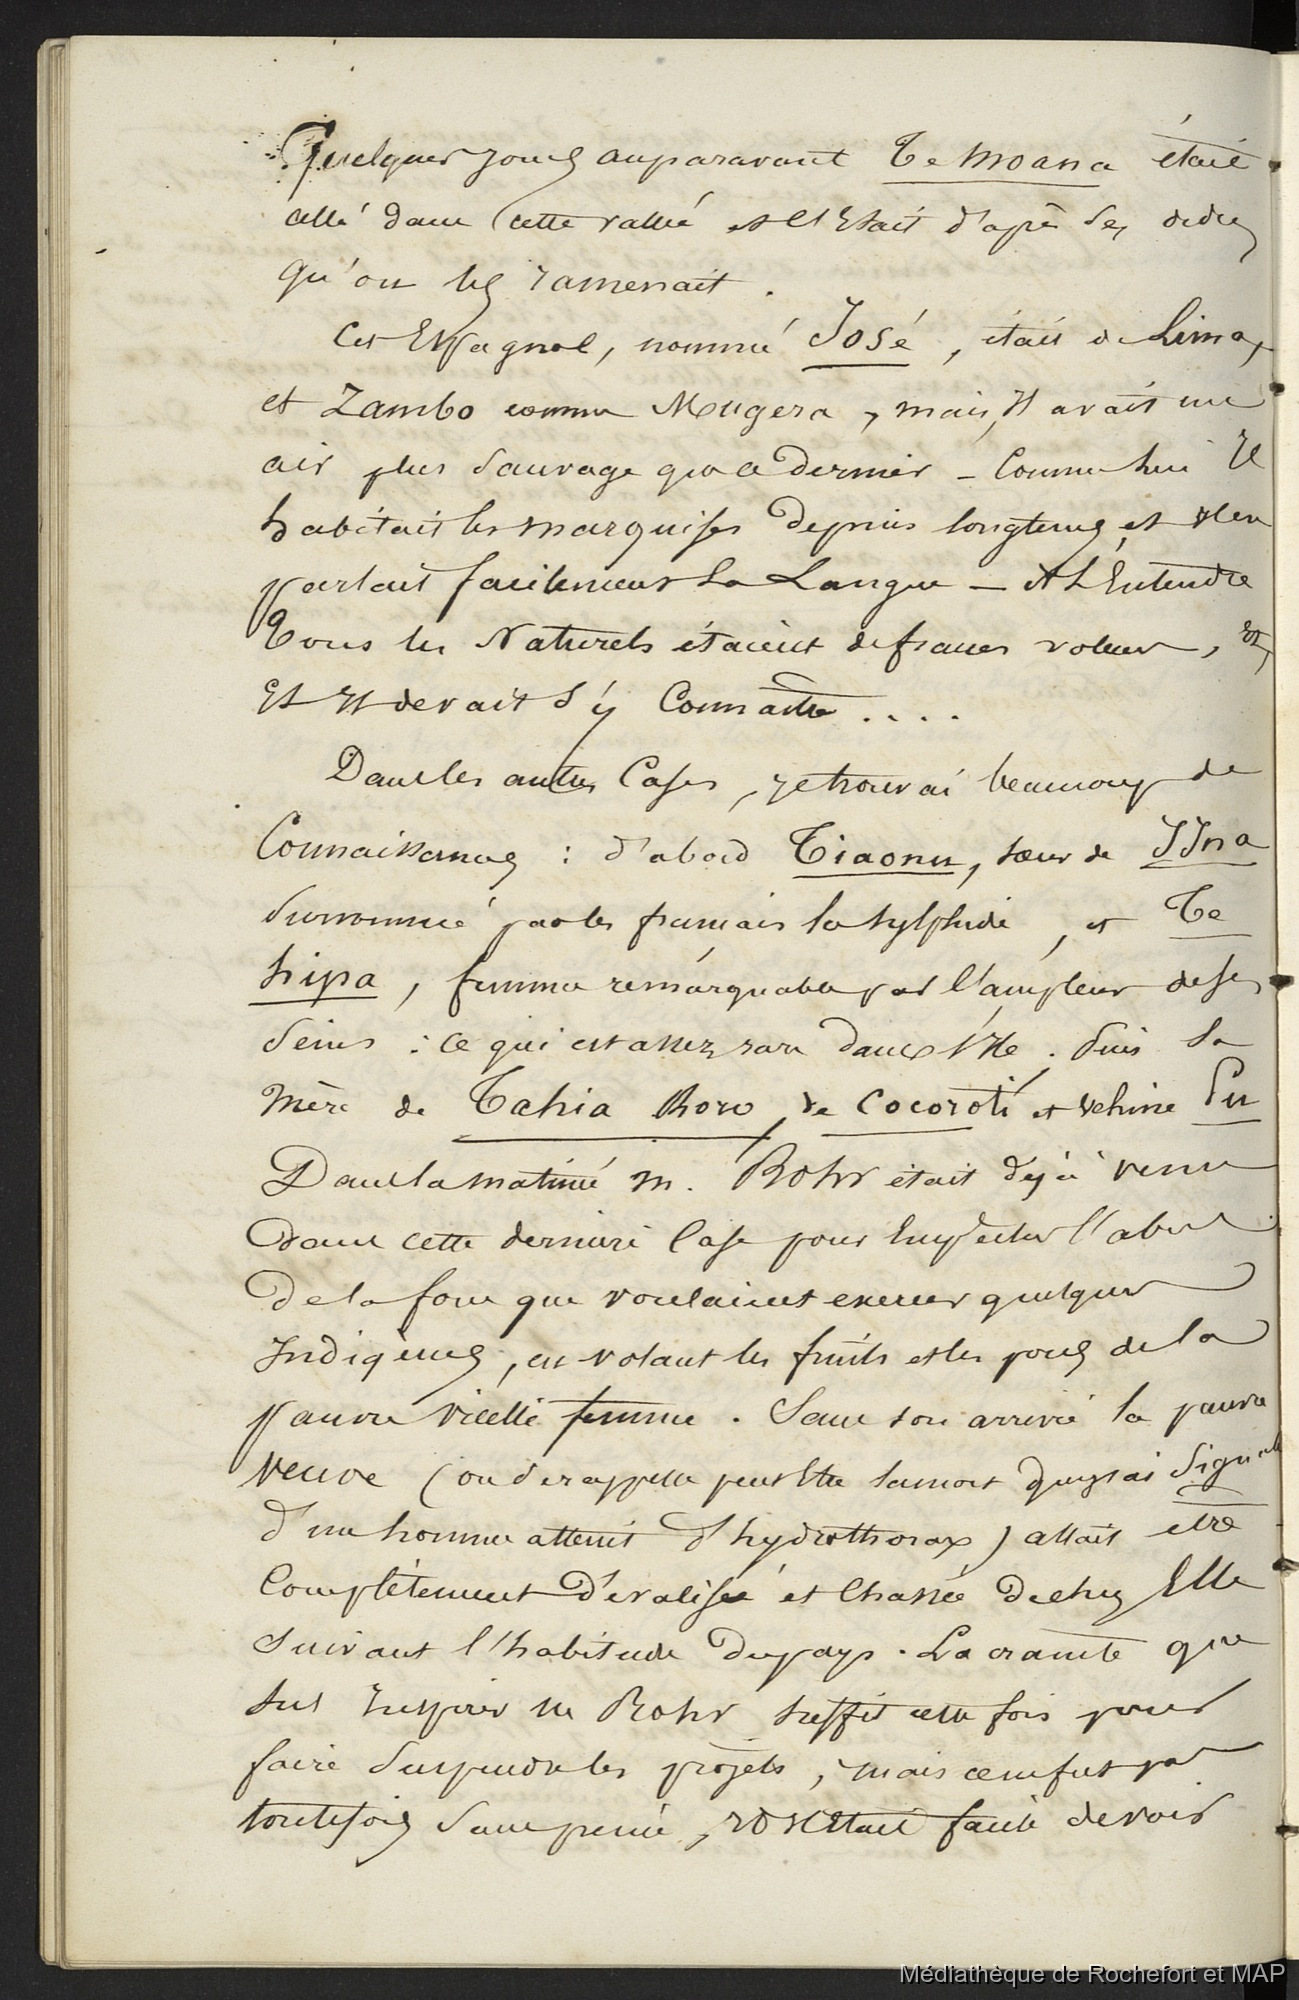 Quelques jours auparavant Te Moana était
allé dans cette vallée et c'était d'après ses ordres
qu'on les ramenait.
Cet Espagnol, nommé José, était de Lima,
et Zambo comme Mugera, mais, il avait un
air plus sauvage que ce dernier – Comme lui Il
habitait les marquises depuis longtems, et Il en
parlait facilement la Langue – A L'Entendre
Tous les Naturels étaient de francs voleurs,
Et Il devait s'y Connaître....
Dans les autres Cases, je trouvai beaucoup de
Connaissances : d'abord Tiaonu, sœur de IIna
surnommée par les français la sylphide, et Te
hipa, femme remárquable par l'ampleur de ses
seins : ce qui est assez rare dans l'Ile. Puis la
mère de Tahia Roro, de Cocoroti et vehine Pu
Dans la matinée M. Rohr était déjà venu
dans cette dernière Case pour l'abus
De la force que voulaient exercer quelques
Indigènes, en volant les fruits et les porcs de la
pauvre vieille femme. Sans son arrivée la pauvre
veuve (on se rappelle peut Etre la mort que j'ai signalé
d'un homme atteint d'hydrothorax) allait etre
Complètement D'évalisée et Chassée de chez Elle
suivant l'habitude du pays. La crainte que
sut Inspirer M Rohr suffit cette fois pour
faire suspendre les projets, mais ce ne fut pas
toutefois sans peine, Il était facile de voir
Médiathèque de Rochefort et MAP